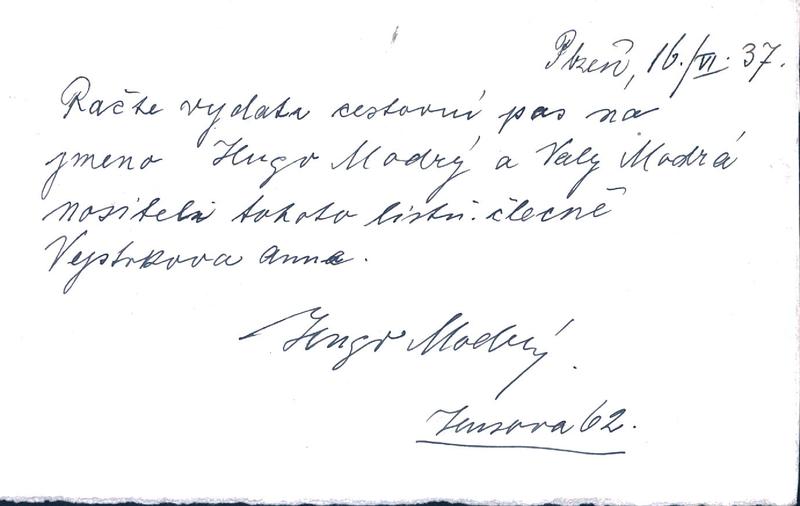 Plzeň, 16./VI. 37.
Račte vydati cestovní pas na
jmeno Hugo Modrý a Valy Modrá
nositeli tohoto listu: slečně
Vystrkova Anna.
Hugo Modrý.
62.